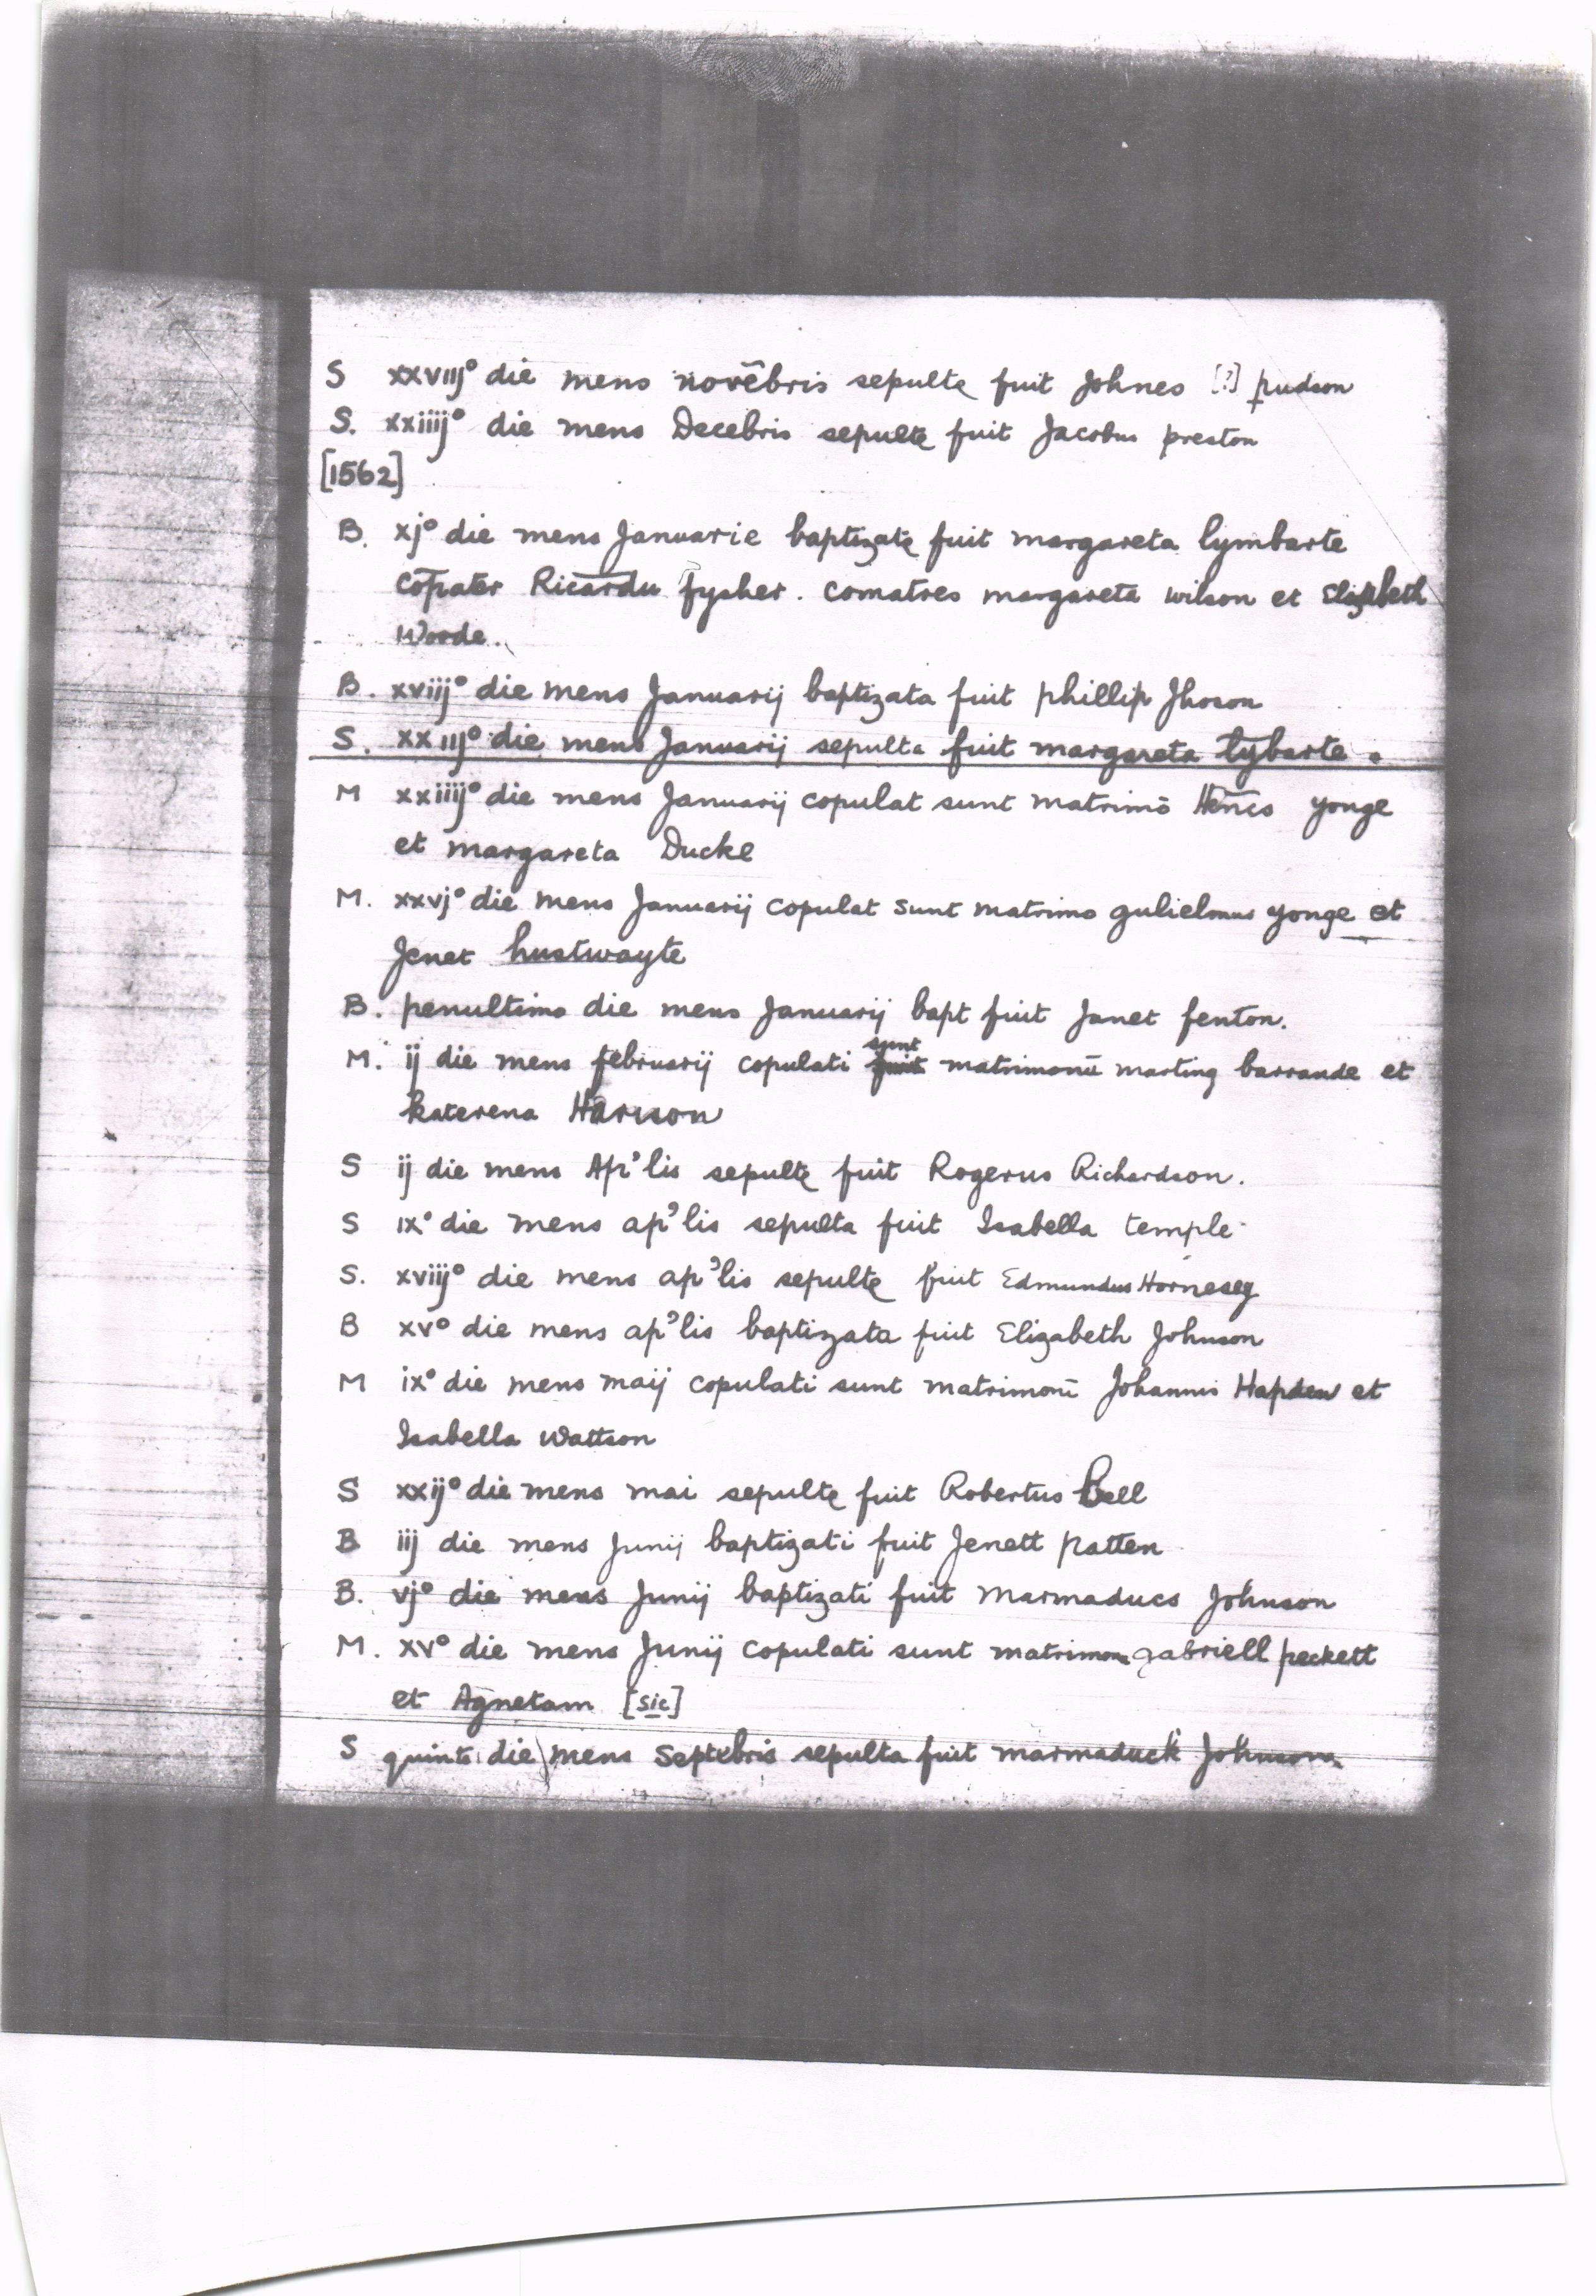 S xxviij° die mens novēbris sepultę fuit Johnes [?] pudson
S. xxiiij° die mens Decebris sepultę fuit Jacobus preston
[1562]
B. xj° die mens Januarie baptizatę fuit margareta lymbarte
cōpater Ricardu fysher. comatres margareta wilson et Elizabeth
Woode.
B. xviij° die mens Januarij baptizata fuit phillip Jhoson
S. xxiij° die mens Januarij sepulta fuit margareta lȳbarte.
M xxiiij° die mens Januarij copulat sunt matrimō Hēncs yonge
et margareta Ducke
M. xxvj° die mens Januarij copulat sunt matrimo gulielmus yonge et
Jenet hustwayte
B. penultimo die mens Januarij bapt fuit Janet fenton.
M. ij die mens februarij copulati sunt fuit matrimonū marting barrande et
katerena Harison
S ij die mens Ap'lis sepultę fuit Rogerus Richardson.
S ix° die mens ap'lis sepulta fuit Isabella temple
S. xviij° die mens ap'lis sepultę fuit Edmundus Hornesey
B xv° die mens ap'lis baptizata fuit Elizabeth Johnson
M ix° die mens maij copulati sunt matrimonī Johannis Hapden et
Isabella Wattson
S xxij° die mens mai sepultę fuit Robertus Bell
B iij die mens Junij baptizati fuit Jenett patten
B. vj° die mens Junij baptizati fuit Marmaducs Johnson
M. xv° die mens Junij copulati sunt matrimon gabriell peckett
et Agnetam [sic]
S quinto die mens Septebris sepulta fuit marmaduck Johnson